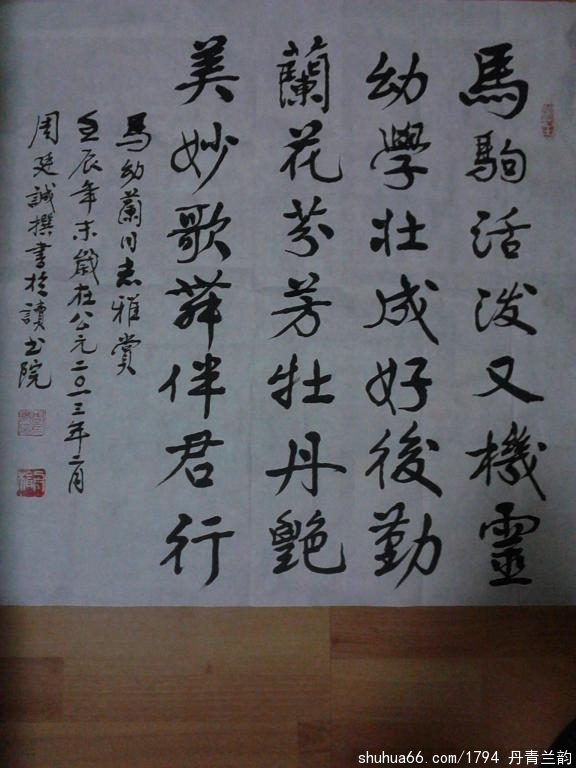 馬駒活泼又機靈
幼學壮成好後勤
蘭花芬芳牡丹艶
美妙歌舞伴君行
马幼蘭同志雅赏
壬辰年末歲在公元二〇一三年二月
周廷誠撰書於讀书院
shuhua66.com/1794 丹青兰韵